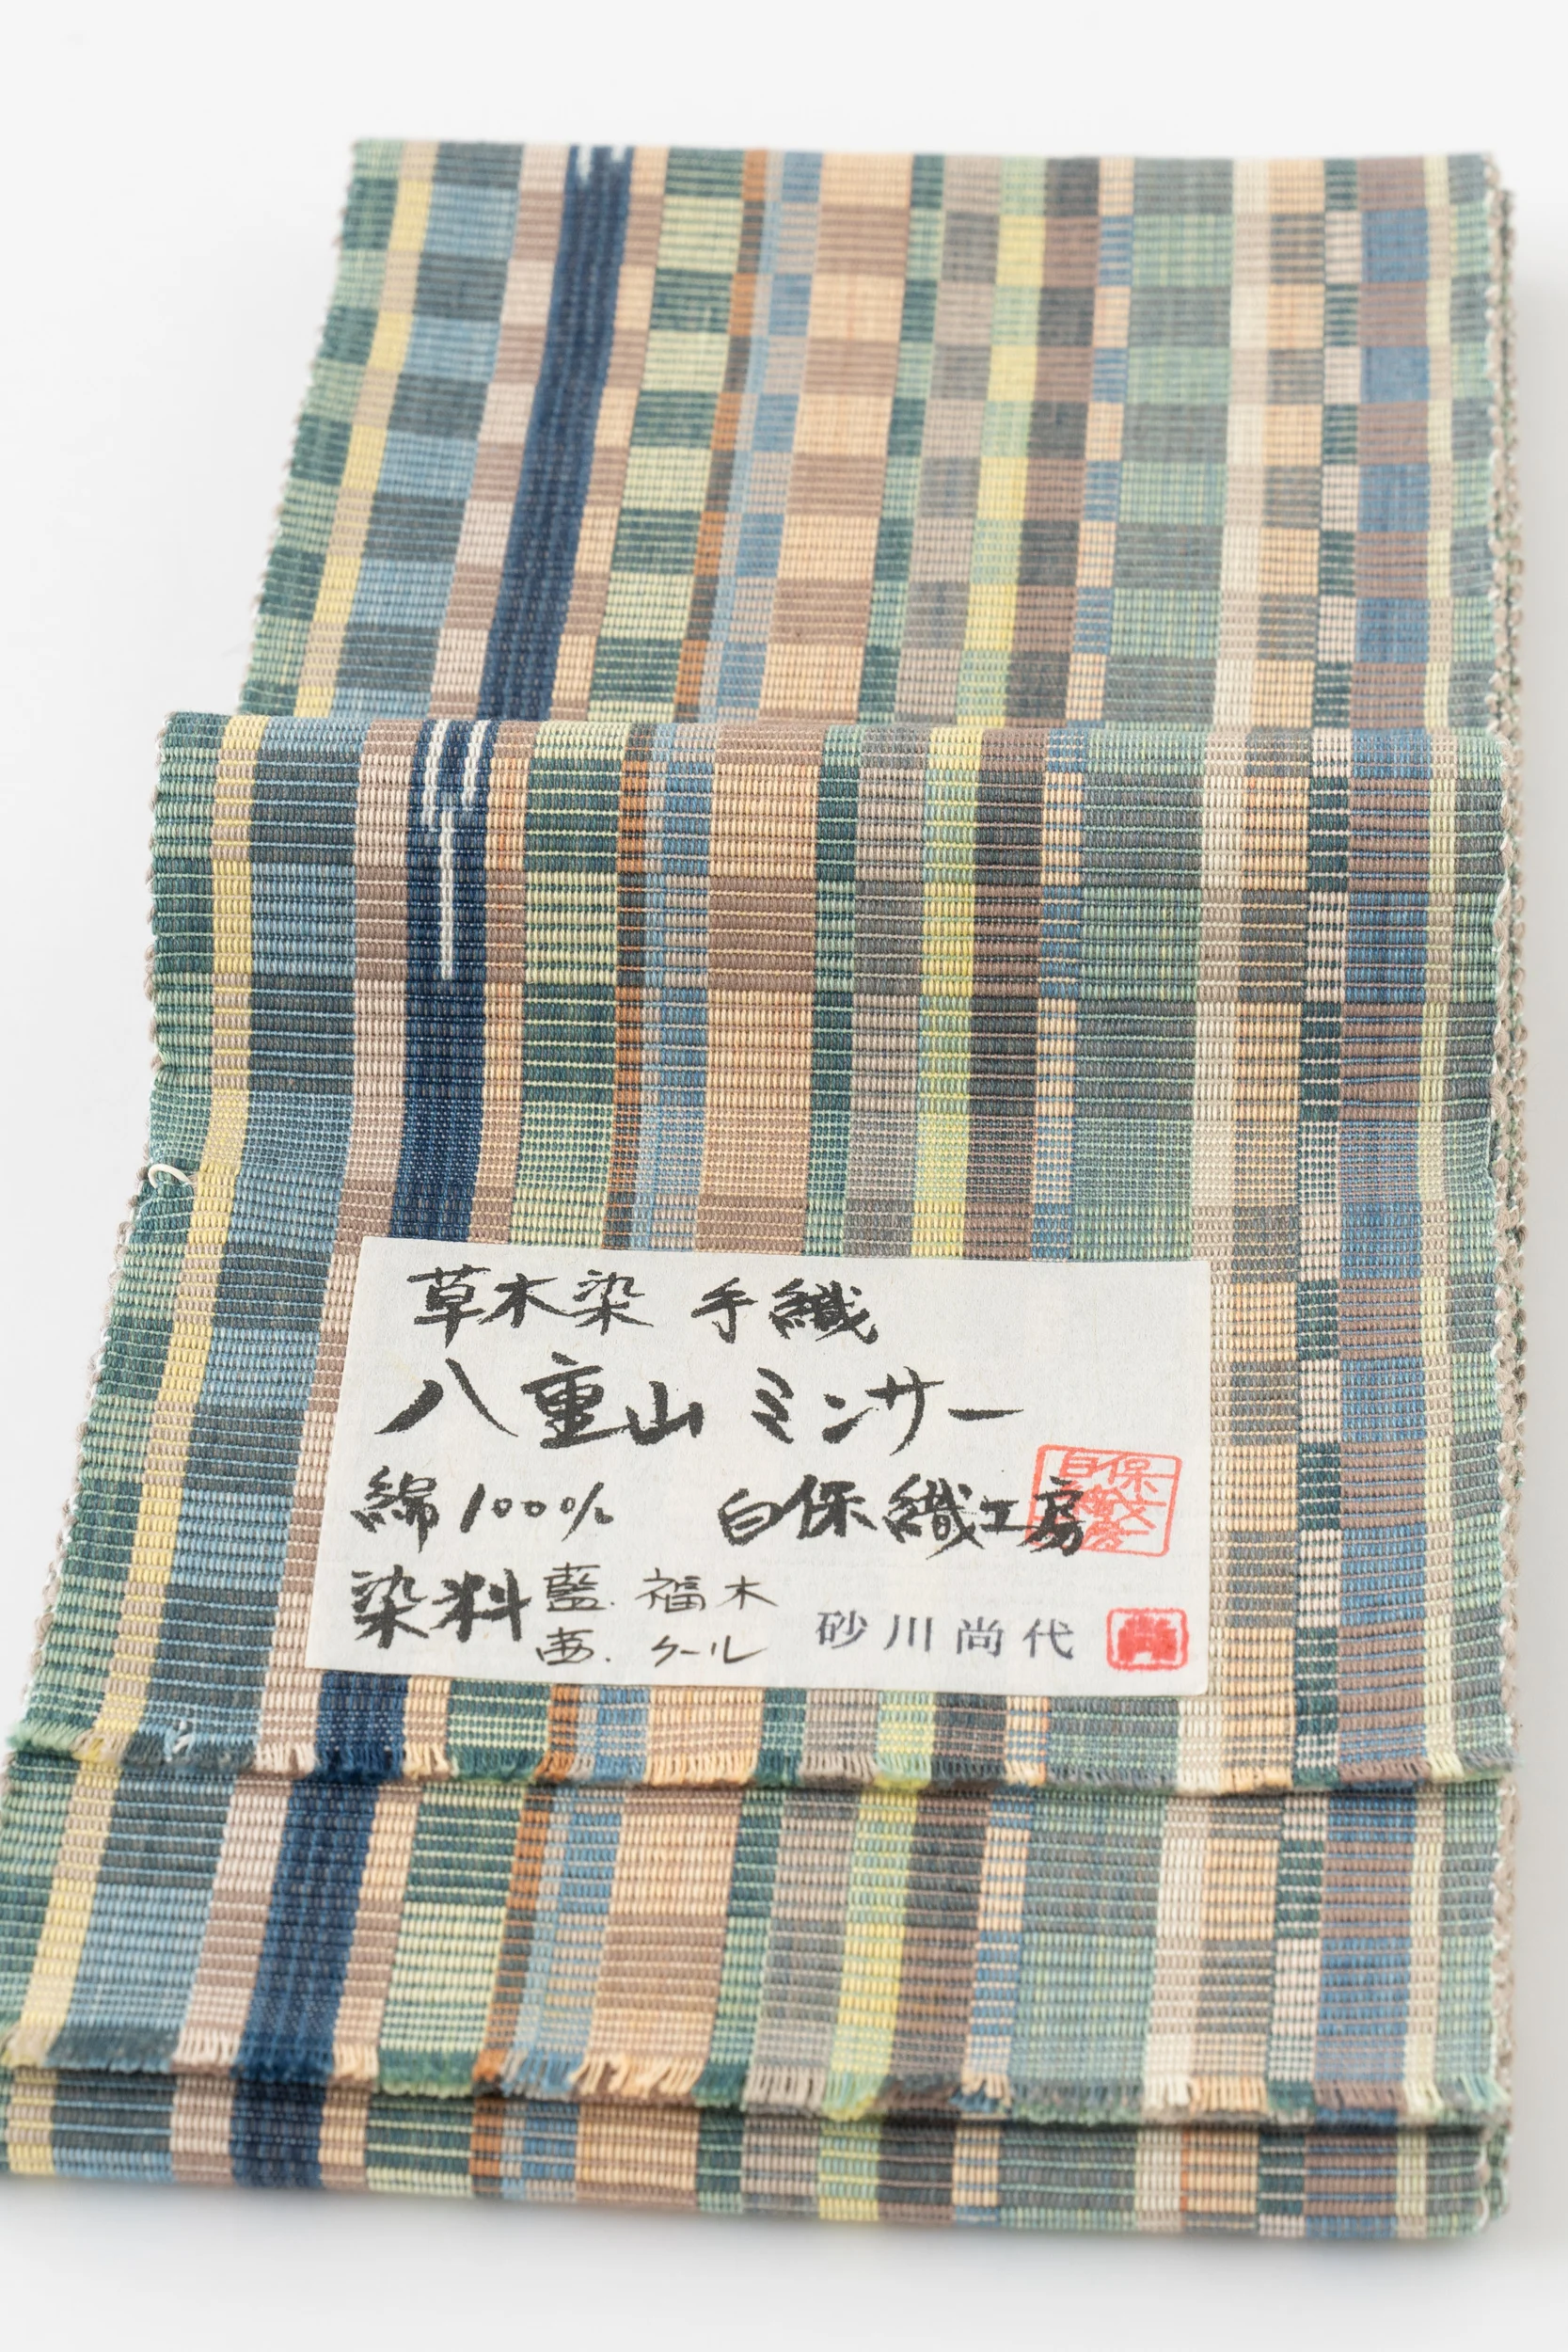 草木染 手織
八重山 ミンサー
綿100% 白保織工房
染料 藍. 福木
茜. クール
砂川尚代